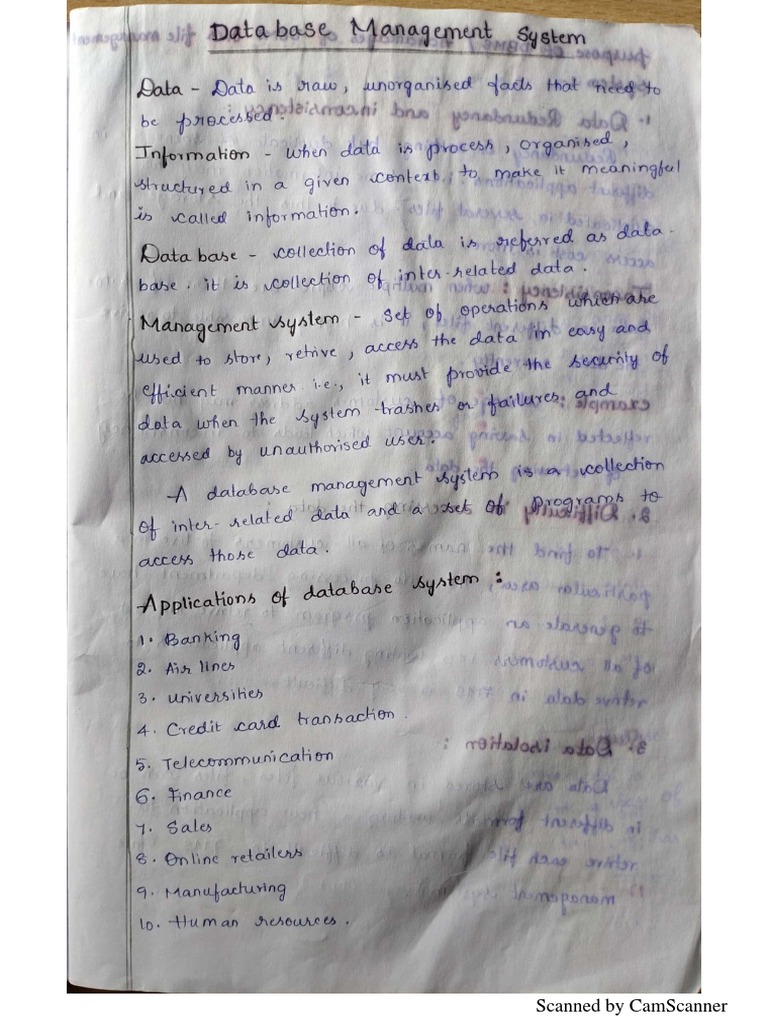 Database Management System
Data - Data is raw, unorganised facts that need to
be processed.
Information - when data is process, organised,
structured in a given context, to make it meaningful
is called information.
Data base - collection of data is referred as data-
base. it is collection of inter-related data.
Management system - set of operations which are
used to store, retrive, access the data in easy and
efficient manner i.e., it must provide the security of
data when the system trashes or failures and
accessed by unauthorised user.
A database management system is a collection
of inter-related data and a set of programs to
access those data.
Applications of database system :
1. Banking
2. Air lines
3. universities
4. Credit card transaction.
5. Telecommunication
6. Finance
7. Sales
8. Online retailers
9. Manufacturing
10. Human resources.
Scanned by CamScanner